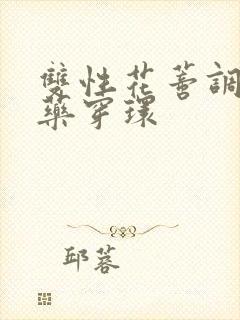 雙性花蒂調
藥穿環
邱蓉